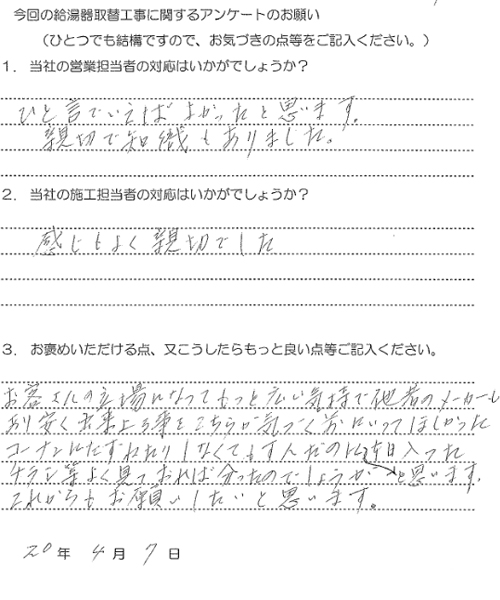 今回の給湯器取替工事に関するアンケートのお願い
(ひとつでも結構ですので、お気づきの点等をご記入ください。)
1. 当社の営業担当者の対応はいかがでしょうか？
ひと言でいえばよかったと思います。
親切で知識もありました。
2. 当社の施工担当者の対応はいかがでしょうか？
感じもよく親切でした
3. お褒めいただける点、又こうしたらもっと良い点等ご記入ください。
お客さんの立場になってもっと広い気持で他者のメーカーも
あり安く出来上る事をこちらが気づく前にいってほしかった
コーナンにたずねたりしなくてもすんだのに 入った
チラシ等よく見ておれば分ったのでしょうが と思います。
これからもお願いしたいと思います。
20年 4月 7日